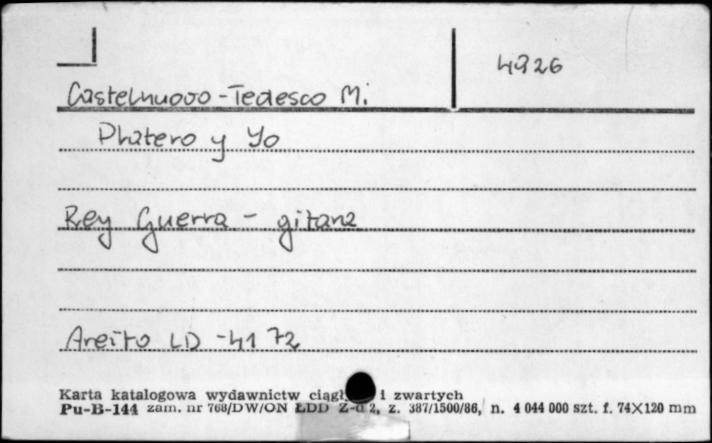 4926
Castelnuovo-Tedesco M.
Platero y Yo
Rey Guerra - gitara
Areito LD-4172
Karta katalogowa wydawnictw i zwartych
Pu-B-144 zam. nr 768/DW/ON ŁDD z. 387/1500/86, n. 4 044 000 szt. f. 74×120 mm